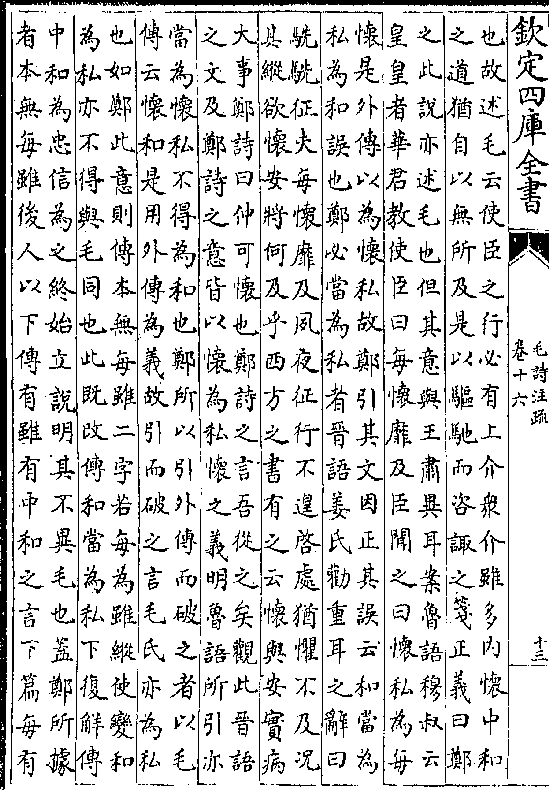 欽定四庫全書
毛詩注疏
卷十六
十三
也故述毛云使臣之行必有上介衆介雖多内懷中和
之道猶自以無所及是以驅馳而咨諏之箋正義曰鄭
之此說亦述毛也但其意與王肅異耳案魯語穆叔云
皇皇者華君教使臣曰每懷靡及臣聞之曰懷私為每
懷是外傳以為懷私故鄭引其文因正其誤云和當為
私為和誤也鄭必當為私者晉語姜氏勸重耳之辭曰
駪駪征夫每懷靡及夙夜征行不遑啓處猶懼不及況
其縱欲懷安將何及乎西方之書有之云懷與安實病
大事鄭詩曰仲可懷也鄭詩之言吾從之矣觀此晉語
之文及鄭詩之意皆以懷為私懷之義明魯語所引亦
當為懷私不得為和也鄭所以引外傳而破之者以毛
傳云懷和是用外傳為義故引而破之言毛氏亦為私
也如鄭此意則傳本無每雖二字若每為雖縱使變和
為私亦不得與毛同也此既改傳和當為私下復解傳
中和為忠信為之終始立說明其不異毛也葢鄭所據
者本無每雖後人以下傳有雖有中和之言下篇每有